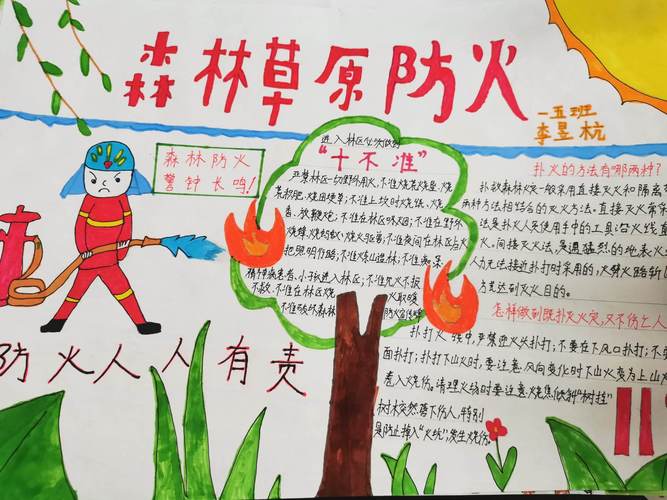 森林草原防火
一五班
李昱杭
森林防火
警钟长鸣！
防火人人有责
进入林区必须做到
“十不准”
严禁林区一切野外用火，不准烧荒烧垦、烧
荒积肥、烧田埂草；不准上坟时烧纸、烧
香、放鞭炮；不准在林区吸烟；不准在野外
不准夜间在林区点火
把照明行路；不准烧山
精神病患者、小孩进入林区；不准见火不报
不救；不准在林区烧火取暖
不准破坏森林防火宣传牌
扑火的方法有哪两种？
扑救森林火一般采用直接灭火和隔离
两种方法相结合的灭火方法。直接灭火常
法是扑火人员使用手中的工具沿火线直
火，间接灭火法，是遇猛烈的地表火
人力无法接近扑打时采用的，
方式达到灭火目的。
怎样做到既扑灭火灾，又不伤亡人
扑打火线中，严禁迎火头扑打；不要在下风口扑打；不
面扑打；扑打下山火时，要注意风向变化时下山火变为上山火
卷入烧伤，清理火场时要注意烧焦倾斜“树挂”
树木突然落下伤人，特别
是防止掉入“火坑”，发生烧伤。
119